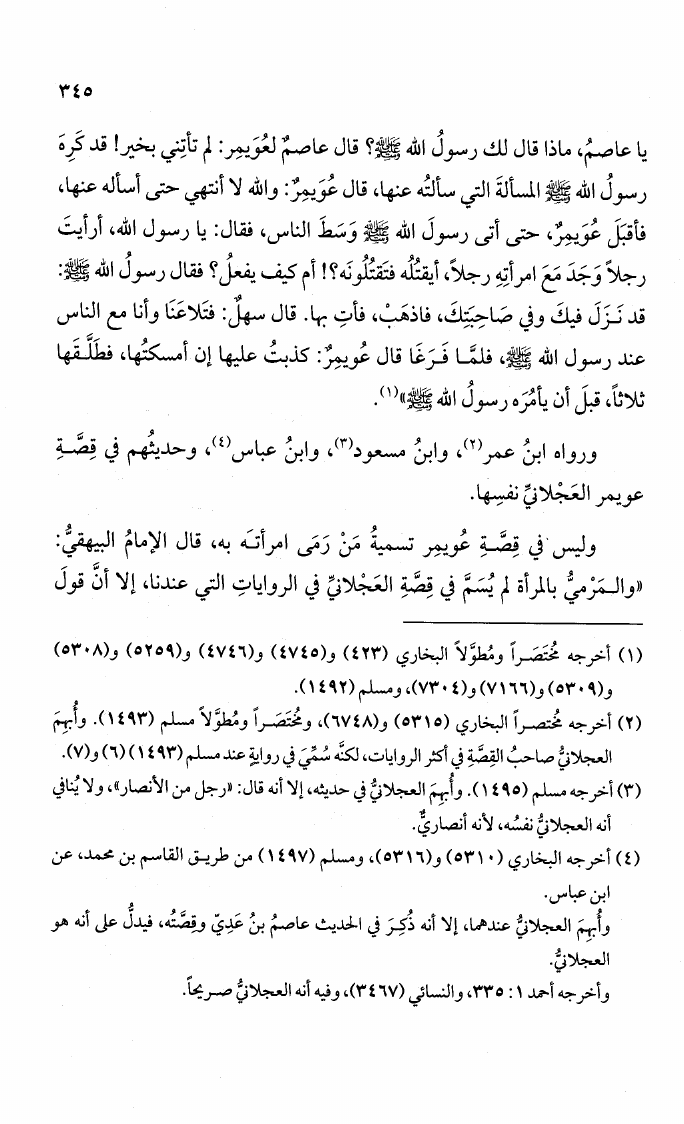 ٣٤٥
يا عاصمُ، ماذا قال لك رسولُ الله ﷺ؟ قال عاصمٌ لعُوَيمِر: لم تأتِني بخير! قد كَرِهَ
رسولُ الله ﷺ المسألةَ التي سألتُه عنها، قال عُوَيمِرٌ: والله لا أنتهي حتى أسأله عنها،
فأقبَلَ عُوَيمِرٌ، حتى أتى رسولَ الله ﷺ وَسَطَ الناس، فقال: يا رسول الله، أرأيتَ
رجلاً وَجَدَ مَعَ امرأتِهِ رجلاً، أيقتُلُه فتَقتُلُونَه؟! أم كيف يفعلُ؟ فقال رسولُ الله ﷺ:
قد نَـزَلَ فيكَ وفي صَاحِبَتِكَ، فاذهَبْ، فأتِ بها. قال سهلٌ: فتَلاعَنَا وأنا مع الناس
عند رسول الله ﷺ، فلمَّـا فَـرَغَا قال عُويمِرٌ: كذبتُ عليها إن أمسكتُها، فطَلَّـقَها
ثلاثاً، قبلَ أن يأمُرَه رسولُ الله ﷺ»(١).
ورواه ابنُ عمر(٢)، وابنُ مسعود(٣)، وابنُ عباس(٤)، وحديثُهم في قِصَّـةِ
عويمر العَجْلانيِّ نفسِها.
وليس في قِصَّـةِ عُويمِر تسميةُ مَنْ رَمَى امرأتَـه به، قال الإمامُ البيهقيُّ:
«والـمَرْميُّ بالمرأة لم يُسَمَّ في قِصَّةِ العَجْلانيِّ في الرواياتِ التي عندنا، إلا أنَّ قولَ
(١) أخرجه مُختَصَـراً ومُطوَّلاً البخاري (٤٢٣) و(٤٧٤٥) و(٤٧٤٦) و(٥٢٥٩) و(٥٣٠٨)
و(٥٣٠٩) و(٧١٦٦) و(٧٣٠٤)، ومسلم (١٤٩٢).
(٢) أخرجه مُختصـراً البخاري (٥٣١٥) و(٦٧٤٨)، ومُختَصَـراً ومُطوَّلاً مسلم (١٤٩٣). وأُبهِمَ
العجلانيُّ صاحبُ القِصَّة في أكثر الروايات، لكنَّه سُمِّيَ في روايةٍ عند مسلم (١٤٩٣) (٦) و(٧).
(٣) أخرجه مسلم (١٤٩٥). وأُبهِمَ العجلانيُّ في حديثه، إلا أنه قال: «رجل من الأنصار»، ولا يُنافي
أنه العجلانيُّ نفسُه، لأنه أنصاريٌّ.
(٤) أخرجه البخاري (٥٣١٠) و(٥٣١٦)، ومسلم (١٤٩٧) من طريـق القاسم بن محمد، عن
ابن عباس.
وأُبهِمَ العجلانيُّ عندهما، إلا أنه ذُكِـرَ في الحديث عاصمُ بنُ عَدِيّ وقِصَّتُه، فيدلُّ على أنه هو
العجلانيُّ.
وأخرجه أحمد ١: ٣٣٥، والنسائي (٣٤٦٧)، وفيه أنه العجلانيُّ صـريحاً.